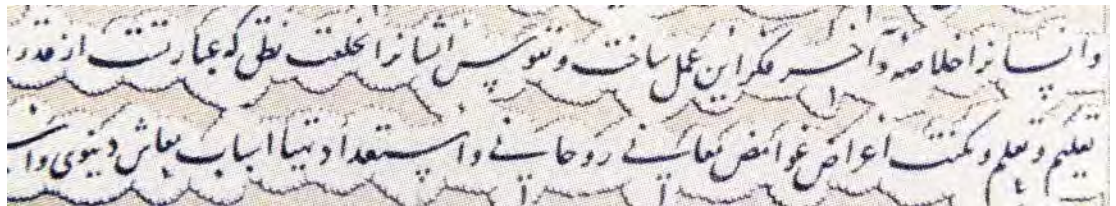 وانسانرا خلاصه وآخر فکر این عمل ساخت ونفوس ایشانرا بخلعت نطق که عبارتست از قدرت
تعلیم وتعلم و اغراض غوامض معانی روحانی واستعداد تهیأ اسباب معاش دنیوی